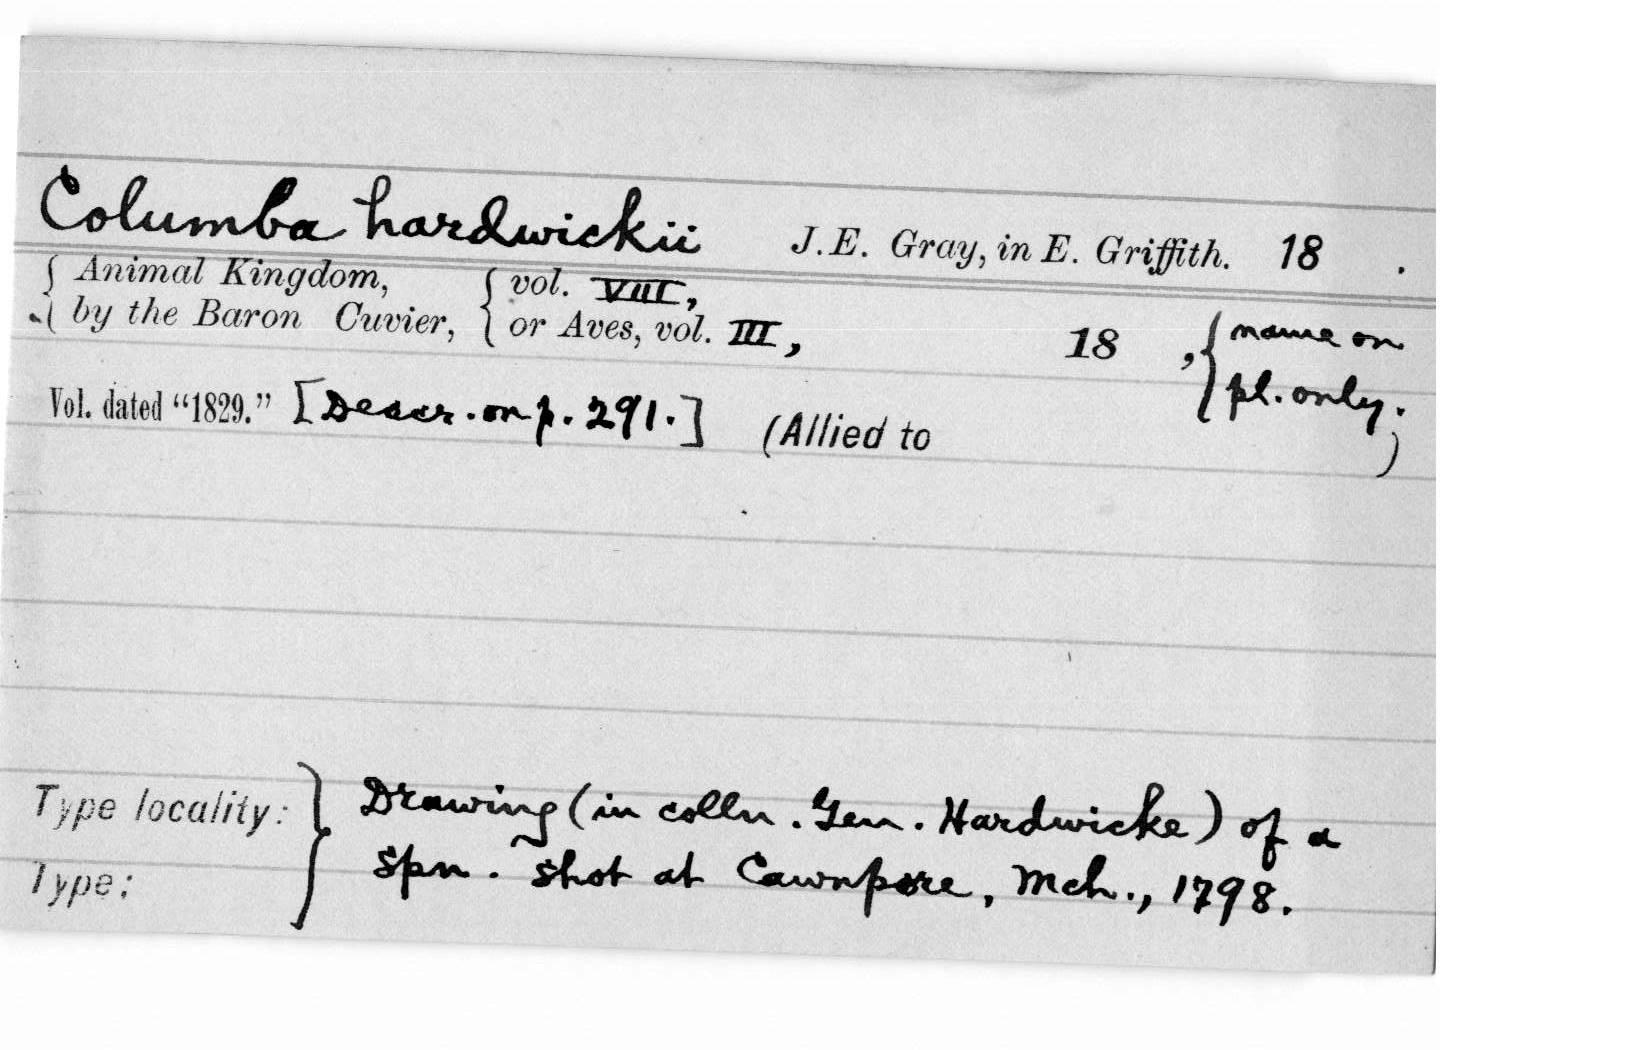 Columba hardwickii J.E. Gray, in E. Griffith. 18 .
{ Animal Kingdom, { vol. VIII,
{ by the Baron Cuvier, { or Aves, vol. III, 18 , { name on
pl. only.
Vol. dated “1829.” [Descr. on p. 291.] (Allied to )
Type locality: } Drawing (in colln. Gen. Hardwicke) of a
Type: } spn. shot at Cawnpore, Mch., 1798.